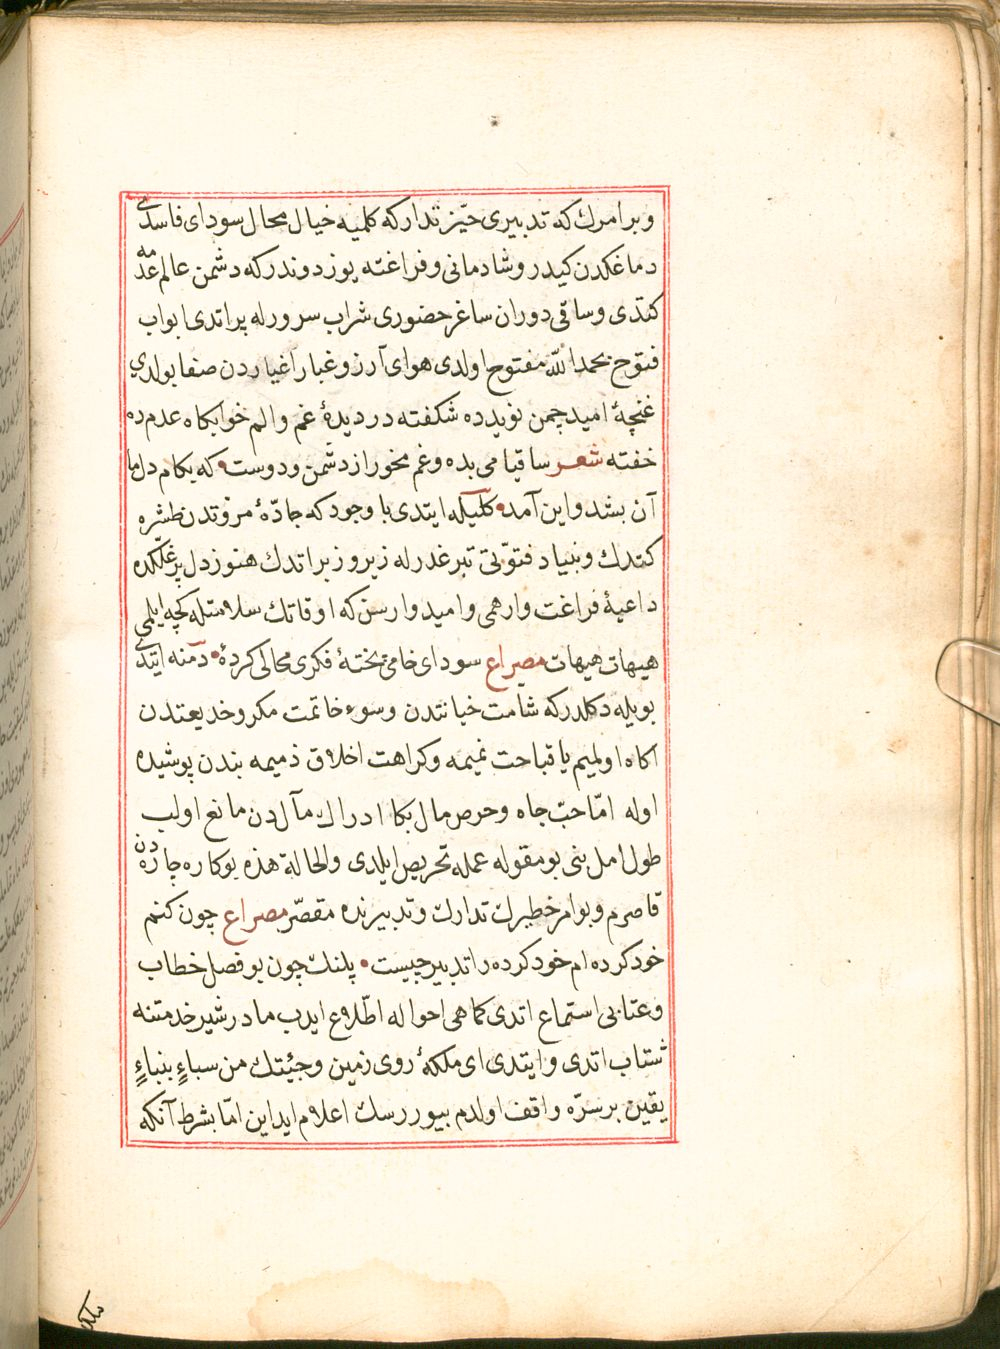 و بر امرك كه تدبيرى حيّز تداركه كلميه خيال محال سوداى فاسدى
دماغكدن كيدر و شادمانى و فراغته يوز دوندر كه دشمن عالم عدمه
كتدى و ساقى دوران ساغر حضورى شراب سرورله پر اتدى ابواب
فتوح بحمد الله مفتوح اولدى هواى آرزو غبار اغياردن صفا بولدى
غنچهٔ اميد چمن نويدده شكفته در ديدهٔ غم و الم خوابكاه عدم ده
خفته شعر ساقيا مى بده و غم مخور از دشمن و دوست • كه بكام دل ما
آن بشد و اين آمد • كليله ايتدى با وجود كه جادّهٔ مروّتدن طشره
كتدك و بنياد فتوّتى تبر غدرله زير و زبر اتدك هنوز دل پر غلّكده
داعيهٔ فراغت وار همى و اميدوارسن كه اوقاتك سلامتله كچه ايلمى
هيهات هيهات مصراع سوداى خامى پختهٔ فكرى محالى كردهٔ • دمنه ايتدى
بويله دكلدر كه شامت خيانتدن و سوء خاتمت مكر و خديعتدن
اكاه اولميم يا قباحت نميمه و كراهت اخلاق ذميمه بندن پوشيده
اوله امّا حبّ جاه و حرص مال بكا ادراك مآلدن مانع اولب
طول امل بنى بو مقوله عمله تحريص ايلدى و الحالة هذه بو كاره چاره دن
قاصرم و بو امر خطيرك تدارك و تدبيرنده مقصّر مصراع چون كنم
خود كرده ام خود كرده را تدبير چيست • پلنك چون بو فصل خطاب
و عتابى استماع اتدى كما هى احواله اطّلاع ايدب مادر شير خدمتنه
شتاب اتدى و ايتدى اى ملكهٔ روى زمين و جئتك من سباءٍ بنباءٍ
يقين بر سرّه واقف اولدم بيوررسك اعلام ايداين امّا بشرط آنكه